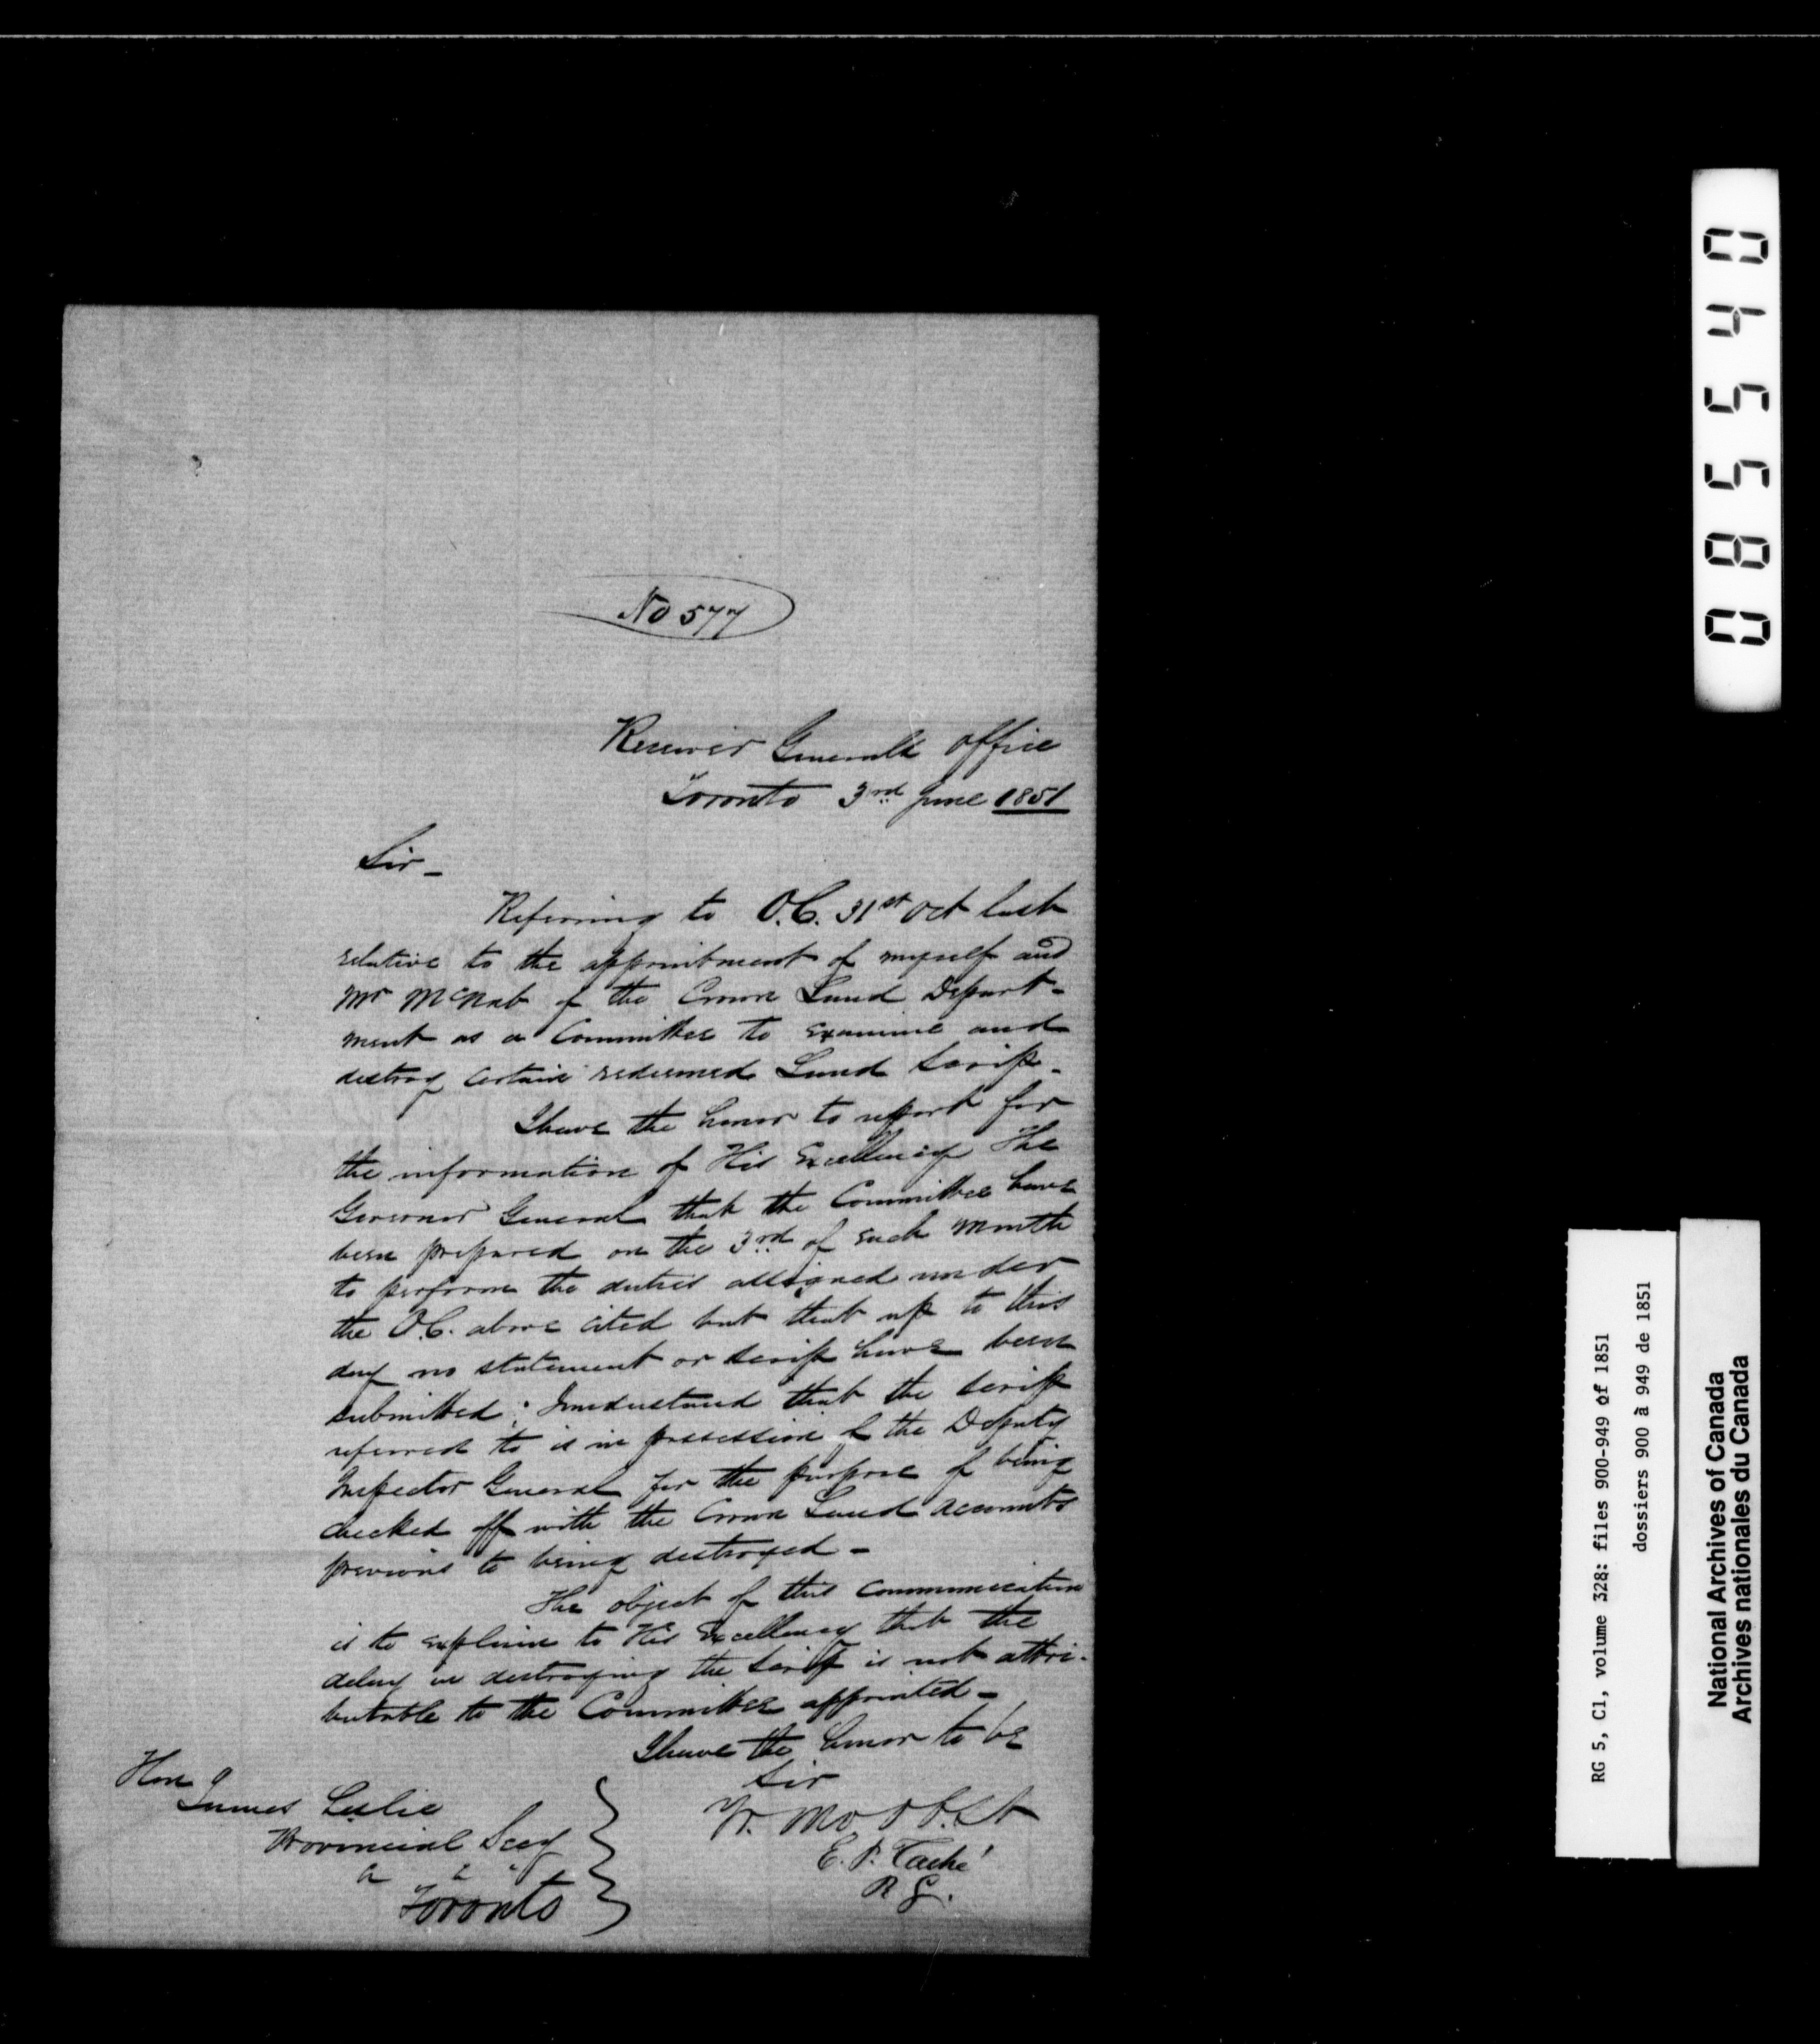 No 577
Receiver Generals Office
Toronto 3rd June 1851
Sir_
Referring to O.C. 31st Oct last
relative to the appointment of myself and
Mr McNab of the Crown Land Depart-
ment as a Committee to examine and
destroy certain redeemed Land Scrip_
I have the honor to report for
the information of His Excellency The
Governor General that the Committee have
been prepared on the 3rd of each month
to perform the duties assigned under
the O.C. above cited but that up to this
day no statement or scrip have been
submitted: I understand that the scrip
referred to is in possession of the Deputy
Inspector General for the purpose of being
checked off with the Crown Land accounts
previous to being destroyed_
The object of this communication
is to explain to His Excellency that the
delay in destroying the Scrip is not attri-
butable to the Committee appointed_
I have the honor to be
Sir
Yr. Mo. Ob. St
E. P. Taché
R G.
Hon
James Leslie
Provincial Secy
Toronto
085540
RG 5, C1, volume 328: files 900-949 of 1851
dossiers 900 à 949 de 1851
National Archives of Canada
Archives nationales du Canada